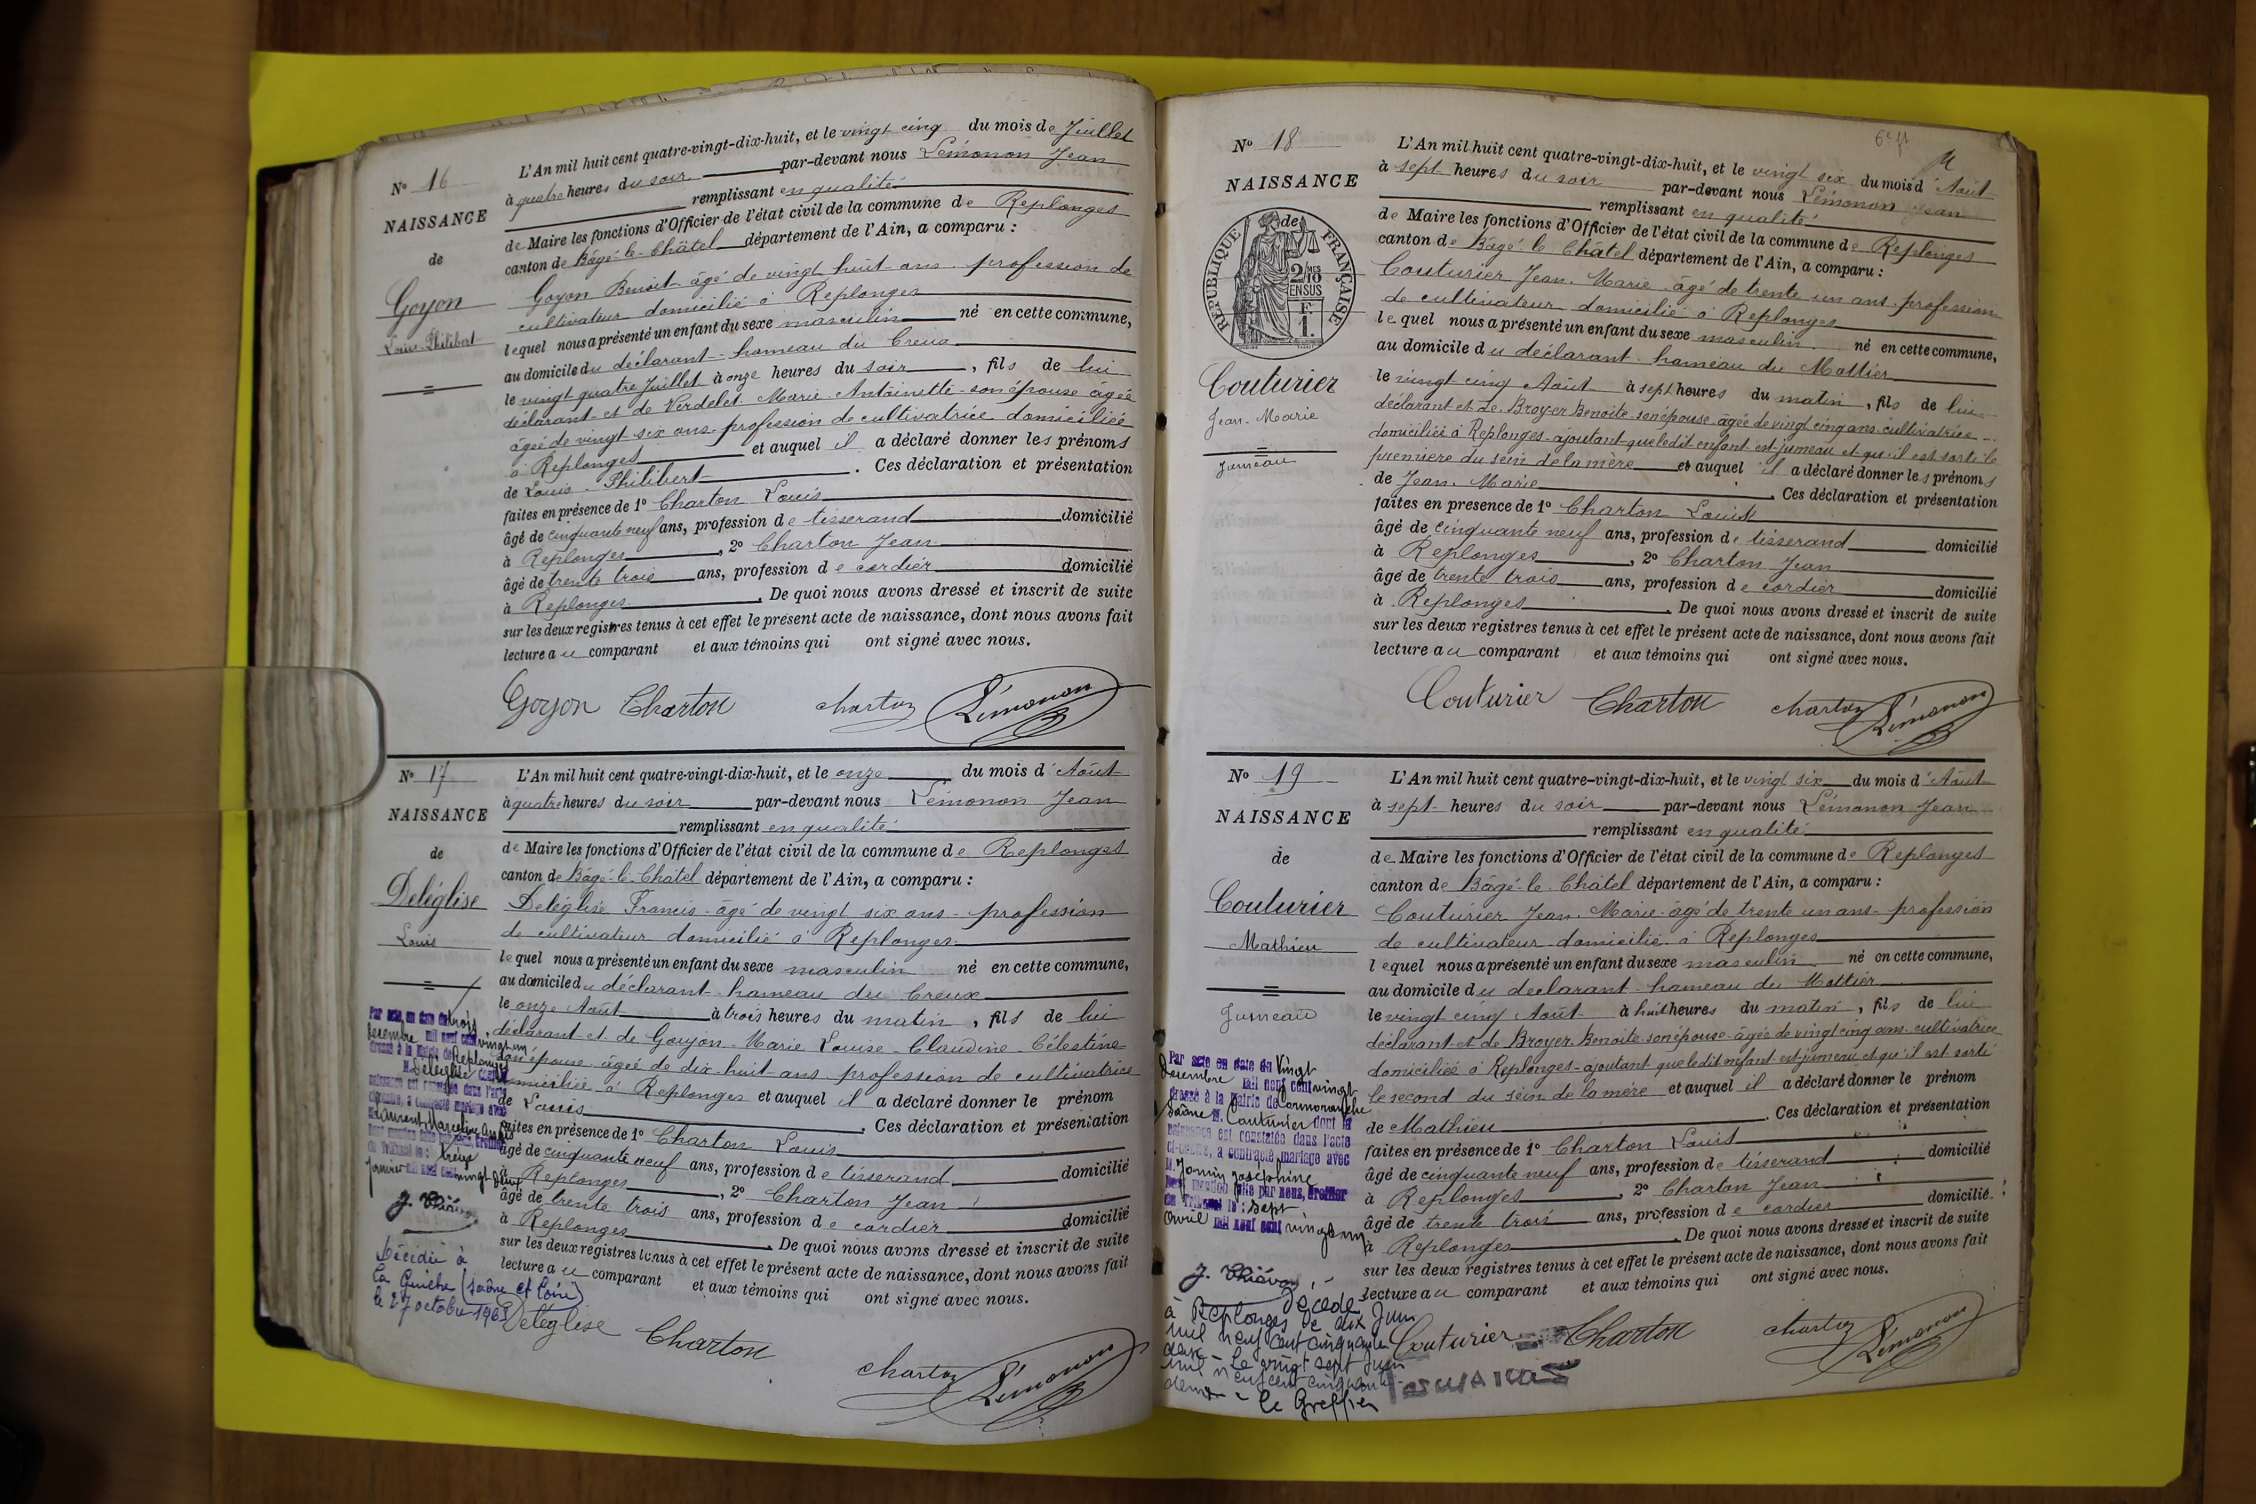 N° 16
NAISSANCE
de
Goyon
Louis-Philibert
L'An mil huit cent quatre-vingt-dix-huit, et le vingt cinq du mois de Juillet
à quatre heures du soir par-devant nous Lémonon Jean
remplissant en qualité
de Maire les fonctions d'Officier de l'état civil de la commune de Replonges
canton de Bâgé-le-Châtel département de l'Ain, a comparu :
Goyon Benoit âgé de vingt huit ans profession de
cultivateur domicilié à Replonges
lequel nous a présenté un enfant du sexe masculin né en cette commune,
au domicile du déclarant hameau du Creux
le vingt quatre Juillet à onze heures du soir, fils de lui
déclarant et de Verdelet Marie Antoinette son épouse âgée
âgée de vingt six ans profession de cultivatrice domiciliée
à Replonges et auquel il a déclaré donner les prénoms
de Louis-Philibert. Ces déclaration et présentation
faites en présence de 1° Charton Louis
âgé de cinquante neuf ans, profession de tisserand domicilié
à Replonges, 2° Charton Jean
âgé de trente trois ans, profession de cordier domicilié
à Replonges. De quoi nous avons dressé et inscrit de suite
sur les deux registres tenus à cet effet le présent acte de naissance, dont nous avons fait
lecture au comparant et aux témoins qui ont signé avec nous.
Goyon Charton charton Lémonon
N° 17
NAISSANCE
de
Deléglise
Louis
L'An mil huit cent quatre-vingt-dix-huit, et le onze du mois d'Août
à quatre heures du soir par-devant nous Lémonon Jean
remplissant en qualité
de Maire les fonctions d'Officier de l'état civil de la commune de Replonges
canton de Bâgé-le-Châtel département de l'Ain, a comparu :
Deléglise Francis âgé de vingt six ans profession
de cultivateur domicilié à Replonges
lequel nous a présenté un enfant du sexe masculin né en cette commune,
au domicile du déclarant hameau du Creux
le onze Août à trois heures du matin, fils de lui
déclarant et de Goujon Marie Louise Claudine Célestine
son épouse âgée de dix huit ans profession de cultivatrice
domiciliée à Replonges et auquel il a déclaré donner le prénom
de Louis. Ces déclaration et présentation
faites en présence de 1° Charton Louis
âgé de cinquante neuf ans, profession de tisserand domicilié
à Replonges, 2° Charton Jean
âgé de trente trois ans, profession de cordier domicilié
à Replonges. De quoi nous avons dressé et inscrit de suite
sur les deux registres tenus à cet effet le présent acte de naissance, dont nous avons fait
lecture au comparant et aux témoins qui ont signé avec nous.
Deléglise Charton charton Lémonon
Par acte en date du trois
décembre mil neuf cent vingt un
dressé à la Mairie de Replonges
M. Deléglise dont la
naissance est constatée dans l'acte
ci-contre, a contracté mariage avec
M. Laurent Marceline
du Tribunal le : treize
janvier mil neuf cent vingt deux
J. Thiévon
Décédé à
La Guiche (Saône et Loire)
le 27 octobre 1963
N° 18
NAISSANCE
de
RÉPUBLIQUE FRANÇAISE
2/10 MES
EN SUS
F
1.
Couturier
Jean-Marie
Jumeau
L'An mil huit cent quatre-vingt-dix-huit, et le vingt six du mois d'Août
à sept heures du soir par-devant nous Lémonon Jean
remplissant en qualité
de Maire les fonctions d'Officier de l'état civil de la commune de Replonges
canton de Bâgé-le-Châtel département de l'Ain, a comparu :
Couturier Jean-Marie âgé de trente un ans profession
de cultivateur domicilié à Replonges
lequel nous a présenté un enfant du sexe masculin né en cette commune,
au domicile du déclarant hameau du Mottier
le vingt cinq Août à sept heures du matin, fils de lui
déclarant et de Broyer Benoite son épouse âgée de vingt cinq ans cultivatrice
domiciliée à Replonges ajoutant que le dit enfant est jumeau et qu'il est sorti le
premiere du sein de la mère et auquel il a déclaré donner les prénoms
de Jean-Marie. Ces déclaration et présentation
faites en présence de 1° Charton Louis
âgé de cinquante neuf ans, profession de tisserand domicilié
à Replonges, 2° Charton Jean
âgé de trente trois ans, profession de cordier domicilié
à Replonges. De quoi nous avons dressé et inscrit de suite
sur les deux registres tenus à cet effet le présent acte de naissance, dont nous avons fait
lecture au comparant et aux témoins qui ont signé avec nous.
Couturier Charton charton Lémonon
N° 19
NAISSANCE
de
Couturier
Mathieu
Jumeau
L'An mil huit cent quatre-vingt-dix-huit, et le vingt six du mois d'Août
à sept heures du soir par-devant nous Lémonon Jean
remplissant en qualité
de Maire les fonctions d'Officier de l'état civil de la commune de Replonges
canton de Bâgé-le-Châtel département de l'Ain, a comparu :
Couturier Jean-Marie âgé de trente un ans profession
de cultivateur domicilié à Replonges
lequel nous a présenté un enfant du sexe masculin né en cette commune,
au domicile du déclarant hameau du Mottier
le vingt cinq Août à huit heures du matin, fils de lui
déclarant et de Broyer Benoite son épouse âgée de vingt cinq ans cultivatrice
domiciliée à Replonges ajoutant que le dit enfant est jumeau et qu'il est sorti
le second du sein de la mère et auquel il a déclaré donner le prénom
de Mathieu. Ces déclaration et présentation
faites en présence de 1° Charton Louis
âgé de cinquante neuf ans, profession de tisserand domicilié
à Replonges, 2° Charton Jean
âgé de trente trois ans, profession de cordier domicilié
à Replonges. De quoi nous avons dressé et inscrit de suite
sur les deux registres tenus à cet effet le présent acte de naissance, dont nous avons fait
lecture au comparant et aux témoins qui ont signé avec nous.
Couturier Charton charton Lémonon
Par acte en date du vingt
décembre mil neuf cent vingt
dressé à la Mairie de Cormoranche
Saône M. Couturier dont la
naissance est constatée dans l'acte
ci-contre, a contracté mariage avec
M. Jomin Joséphine
Dont mention faite par nous, Greffier
du Tribunal le : sept
avril mil neuf cent vingt un
J. Thiévon
Décédé
à Replonges le dix Juin
mil neuf cent cinquante
deux - Le vingt sept Juin
mil neuf cent cinquante
deux - Le Greffier